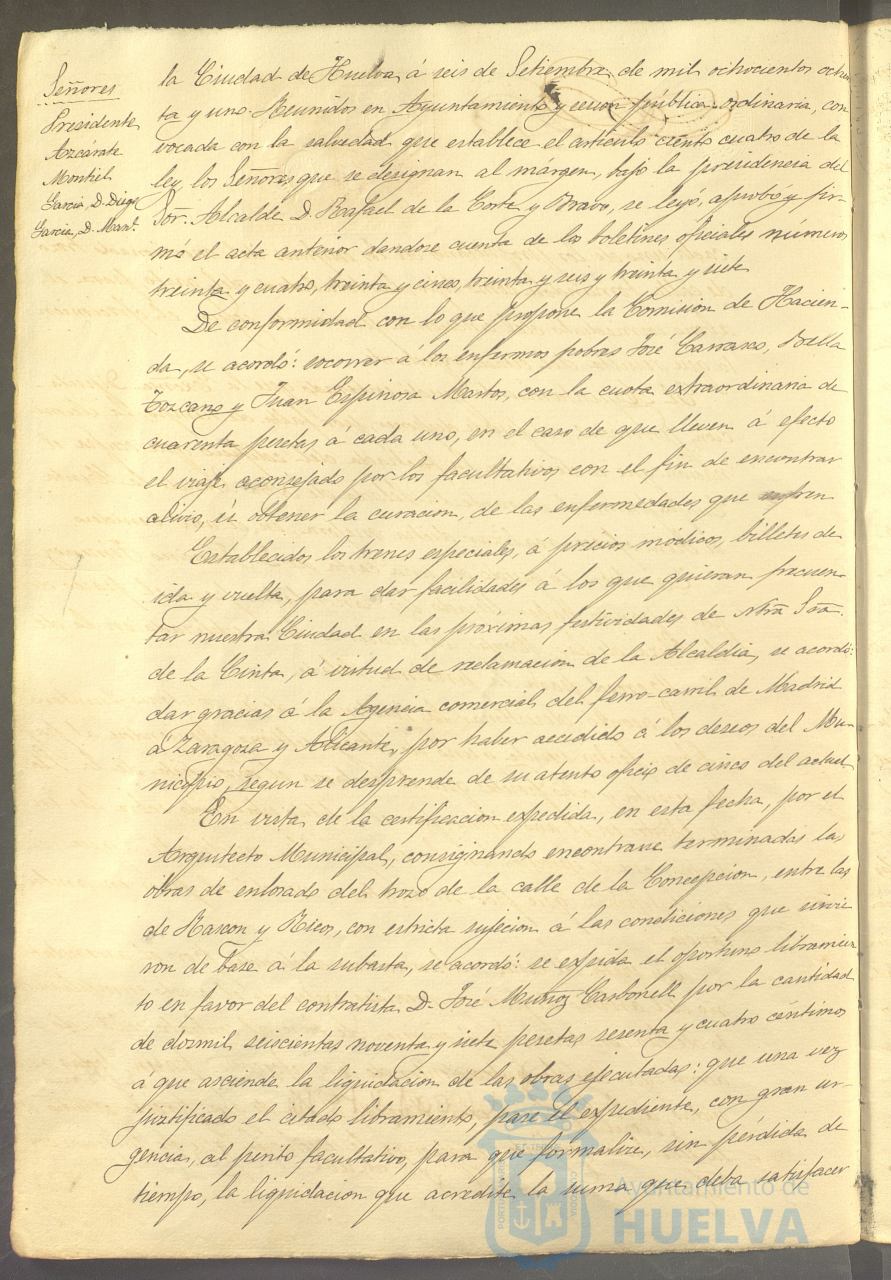 Señores
Presidente
Azcárate
Montiel
Garcia D. Diego
Garcia, D. Manl.
la Ciudad de Huelva, á seis de Setiembre de mil ochocientos ochen-
ta y uno. Reunidos en Ayuntamiento y sesion pública ordinaria, con
vocada con la salvedad que establece el artículo ciento cuatro de la
ley, los Señores que se designan al márgen, bajo la presidencia del
Sor. Alcalde D. Rafael de la Corte y Bravo, se leyó, aprobó y fir-
mó el acta anterior dandose cuenta de los boletines oficiales números
treinta y cuatro, treinta y cinco, treinta y seis y treinta y siete
De conformidad con lo que propone la Comision de Hacien-
da, se acordó: socorrer á los enfermos pobres José Carrasco, Bella
Tozcano y Juan Espinosa Martos, con la cuota extraordinaria de
cuarenta pesetas á cada uno, en el caso de que lleven á efecto
el viaje aconsejado por los facultativos con el fin de encontrar
alivio, ú obtener la curacion, de las enfermedades que sufren
Establecidos los trenes especiales, á precios módicos, billetes de
ida y vuelta, para dar facilidades á los que quieran frecuen
tar nuestra Ciudad en las próximas festividades de Ntra Sra
de la Cinta, á virtud de reclamacion de la Alcaldia, se acordó:
dar gracias á la Agencia comercial del ferro-carril de Madrid
á Zaragoza y Alicante, por haber accedido á los deseos del Mu-
nicipio, segun se desprende de su atento oficio de cinco del actual
En vista de la certificacion expedida, en esta fecha, por el
Arquitecto Municipal, consignando encontrarse terminadas las
obras de enlosado del trozo de la calle de la Concepcion, entre las
de Rascon y Ricos, con estricta sujecion á las condiciones que sirvie
ron de base á la subasta, se acordó: se expida el oportuno libramien
to en favor del contratista D. José Muñoz Carbonell por la cantidad
de dosmil seiscientas noventa y siete pesetas sesenta y cuatro céntimos
á que asciende la liquidacion de las obras ejecutadas: que una vez
justificado el citado libramiento, pase el expediente, con gran ur-
gencia, al perito facultativo, para que formalice, sin pérdida de
tiempo, la liquidacion que acredite la suma que deba satisfacer
Ayuntamiento de
HUELVA